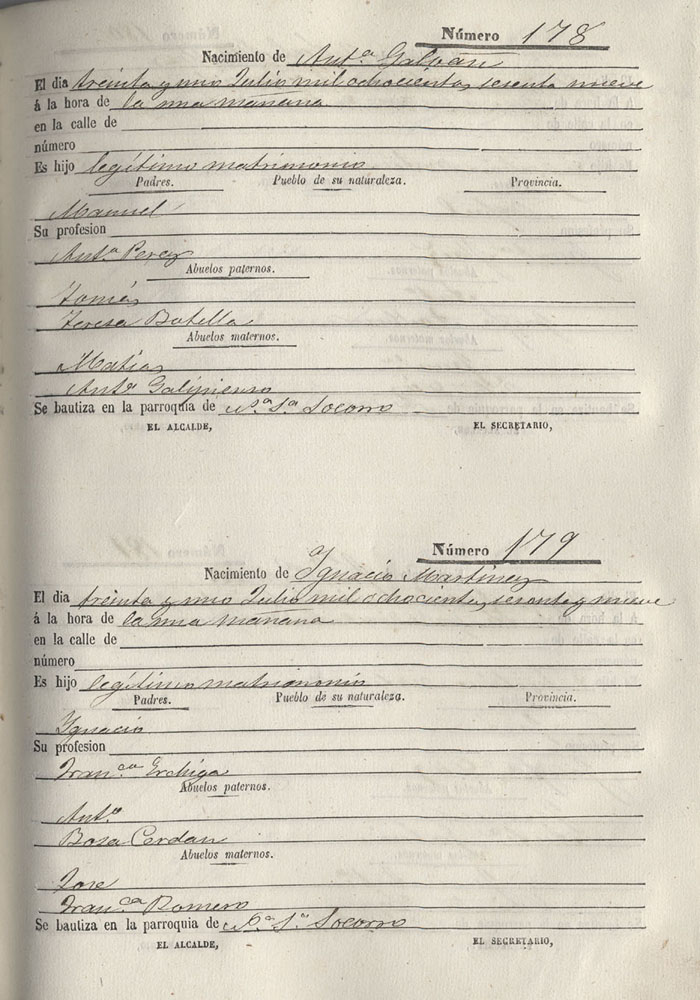 Número 178
Nacimiento de Antª Galvan
El dia treinta y uno Julio mil ochocientos sesenta nueve
á la hora de la una mañana
en la calle de
número
Es hijo legítimo matrimonio
Padres. Pueblo de su naturaleza. Provincia.
Manuel
Su profesion
Antª Perez
Abuelos paternos.
Tomás
Teresa Botella
Abuelos maternos.
Matias
Antª
Se bautiza en la parroquia de Nª Sª Socorro
EL ALCALDE, EL SECRETARIO,
Número 179
Nacimiento de Ignacio Martinez
El dia treinta y uno Julio mil ochocientos sesenta y nueve
á la hora de la una mañana
en la calle de
número
Es hijo legítimo matrimonio
Padres. Pueblo de su naturaleza. Provincia.
Ignacio
Su profesion
Franᶜᵃ
Abuelos paternos.
Antº
Rosa Cerdan
Abuelos maternos.
Jose
Franᶜᵃ Romero
Se bautiza en la parroquia de Nª Sª Socorro
EL ALCALDE, EL SECRETARIO,